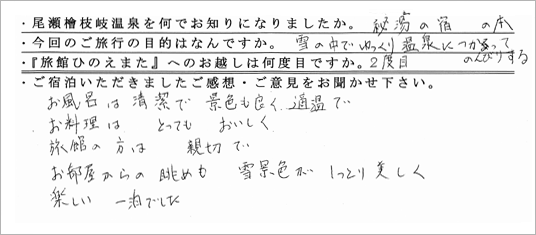 ・尾瀬檜枝岐温泉を何でお知りになりましたか。 秘湯の宿 の本
・今回のご旅行の目的はなんですか。 雪の中でゆっくり温泉につかって
のんびりする
・『旅館ひのえまた』へのお越しは何度目ですか。2度目
・ご宿泊いただきましたご感想・ご意見をお聞かせ下さい。
お風呂は清潔で 景色も良く 適温で
お料理は とっても おいしく
旅館の方は 親切で
お部屋からの眺めも 雪景色が しっとり美しく
楽しい 一泊でした